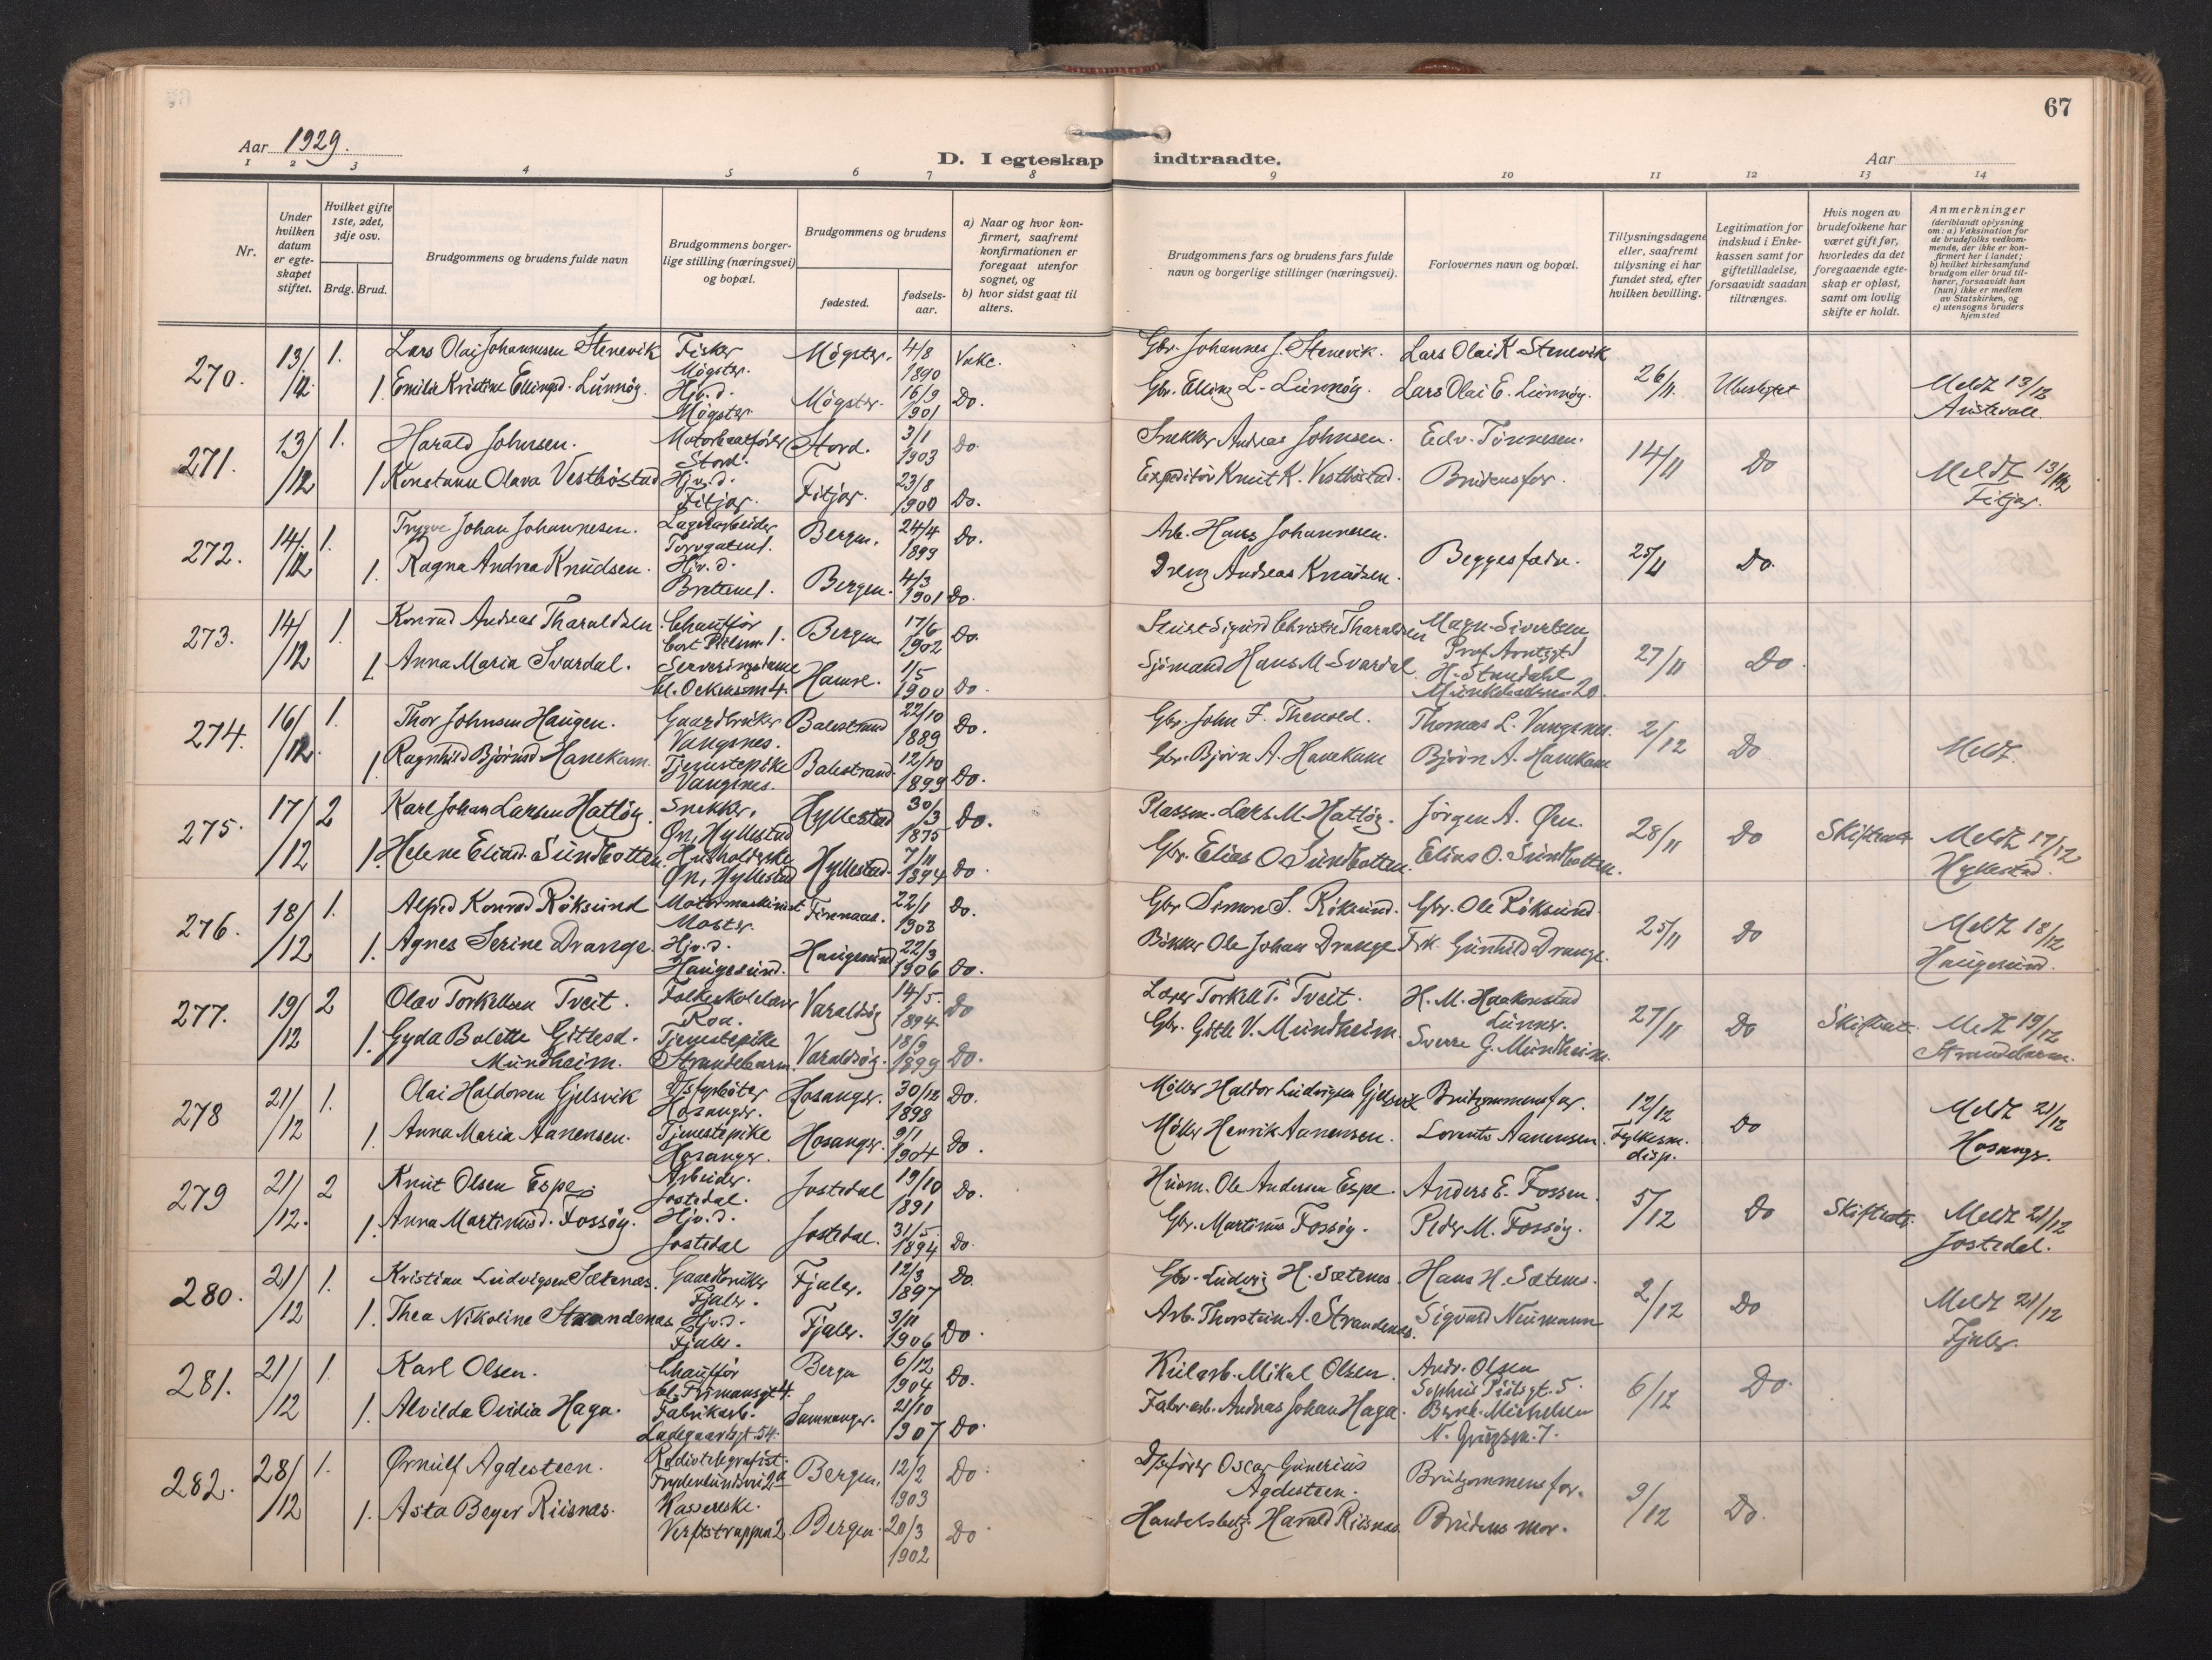 67
Aar 1929.
D. I egteskap indtraadte.
Aar
1 2 3 4 5 6 7 8 9 10 11 12 13 14
Nr.
Under hvilken datum er egteskapet stiftet.
Hvilket gifte 1ste, 2det, 3dje osv.
Brdg. Brud.
Brudgommens og brudens fulde navn
Brudgommens borgerlige stilling (næringsvei) og bopæl.
Brudgommens og brudens
fødested.
fødselsaar.
a) Naar og hvor konfirmert, saafremt konfirmationen er foregaat utenfor sognet, og
b) hvor sidst gaat til alters.
Brudgommens fars og brudens fars fulde navn og borgerlige stillinger (næringsvei).
Forlovernes navn og bopæl.
Tillysningsdagene eller, saafremt tillysning ei har fundet sted, efter hvilken bevilling.
Legitimation for indskud i Enkekassen samt for giftetilladelse, forsaavidt saadan tiltrænges.
Hvis nogen av brudefolkene har været gift før, hvorledes da det foregaaende egteskap er opløst, samt om lovlig skifte er holdt.
Anmerkninger
(deriblandt oplysning om: a) Vaksination for de brudefolks vedkommende, der ikke er konfirmert her i landet;
b) hvilket kirkesamfund brudgom eller brud tilhører, forsaavidt han (hun) ikke er medlem av Statskirken, og
c) utensogns bruders hjemsted
270. 13/12 1. Lars Olai Johannesen Stenevik Fisker Møgster. Møgster. 4/8 1890 Vake. Gbr. Johannes J. Stenevik. Lars Olai K Stenevik 26/11. Ubeskyttet Meldt 13/12 Austevoll.
1. Emilie Kristine Ellingsd. Lunnøy. Hjv.d. Møgster Møgster. 16/9 1901 Do. Gbr. Elling L. Lunnøy. Lars Olai E. Lunnøy.
271. 13/12 1. Harald Johnsen. Motorbaatfører Stord. Stord. 3/1 1903 Do. Snekker Andreas Johnsen. Edv. Tønnesen. 14/11 Do Meldt 13/12 Fitjar.
1 Konstanse Olava Vestbøstad Hjv.d. Fitjar. Fitjar. 23/8 1900 Do. Expeditør Knut K. Vestbøstad. Brudens far.
272. 14/12 1. Trygve Johan Johannesen. Lagerarbeider Torvgaten 1. Bergen. 24/4 1899 Do. Arb. Hans Johannesen. Begges fædre. 25/11 Do.
1. Ragna Andrea Knudsen. Hjv.d. Bergen. 4/3 1901 Do. Andreas Knudsen.
273. 14/12 1. Konrad Andreas Tharaldsen. Chauffør Bergen 17/6 1902 Do. Sigurd Christie Tharaldsen Magn. Sivertsen 27/11 Do.
1. Anna Maria Svardal. Serveringsdame Hamre. 1/5 1900 Do. Sjømand Hans M. Svardal. H. Standahl
274. 16/12. 1. Thor Johnsen Haugen. Gaardbruker Vangsnes. Balestrand 22/10 1889 Do. Gbr. John F. Thenold. Thomas L. Vangsnes. 2/12 Do Meldt.
1. Ragnhild Bjørnsd Hanekam. Tjenestepike Vangsnes. Balestrand. 12/10 1899 Do. Gbr. Bjørn A. Hanekam Bjørn A. Hanekam
275. 17/12 2 Karl Johan Larsen Hatløy. Snekker. Øn, Hyllestad Hyllestad 30/3 1875 Do. Plassm. Lars M. Hatløy. Jørgen A. Øen. 28/11 Do Skifteatt. Meldt 17/12 Hyllestad.
1. Helene Eliasd. Sundbotten. Husholderske Øn, Hyllestad Hyllestad. 7/11 1894 Do. Gbr. Elias O. Sundbotten. Elias O. Sundbotten.
276. 18/12 1. Alfred Konrad Røksund Motormaskinist Moster. Finnaas. 22/1 1903 Do. Gbr Simon S. Røksund. Gbr. Ole Røksund. 25/11 Do Meldt 18/12 Haugesund.
1. Agnes Serine Drange. Hjv.d. Haugesund. Haugesund 22/3 1906 Do. Bøkker Ole Johan Drange Frk. Gunhild Drange.
277. 19/12 2 Olav Torkellsen Tveit. Folkeskolelærer Roa. Varaldsøy 14/5. 1894. Do Lærer Torkell T. Tveit. H. M. Haakenstad Lunner. 27/11 Do Skifteatt. Meldt 19/12 Strandebarm.
1. Gyda Bolette Gitlesd. Mundheim. Tjenestepike Strandebarm. Varaldsøy. 18/9 1899 Do. Gbr. Gitle V. Mundheim. Sverre G. Mundheim.
278 21/12 1. Olai Haldorsen Gjelsvik D/sfyrbøter Hosanger. Hosanger. 30/12 1898 Do. Møller Haldor Ludvigsen Gjelsvik Brudgommens far. 12/12 Fylkesm. disp. Do Meldt 21/12 Hosanger.
1. Anna Maria Aanensen. Tjenestepike Hosanger. Hosanger. 9/1 1904 Do. Møller Henrik Aanensen. Lorents Aanensen.
279 21/12. 2 Knut Olsen Espe. Arbeider. Jostedal. Jostedal 19/10 1891 Do. Husm. Ole Andersen Espe. Anders E. Fossen. 5/12 Do Skifteatt. Meldt 21/12 Jostedal.
1. Anna Martinusd. Fossøy. Hjv.d. Jostedal Jostedal. 31/5. 1894 Do. Gbr. Martinus Fossøy. Peder M. Fossøy.
280. 21/12 1. Kristian Ludvigsen Sætenes. Gaardbruker Fjaler. Fjaler. 12/3 1897 Do. Gbr. Ludvig H. Sætenes Hans H. Sætenes. 2/12 Do Meldt 21/12 Fjaler.
1. Thea Nikoline Strandenæs Hjv.d. Fjaler. Fjaler. 3/11 1906 Do. Arb. Thorstein A. Strandenæs. Sigvard Neumann
281. 21/12 1. Karl Olsen. Chauffør Bergen 6/12 1904 Do. Kularb. Mikal Olsen. Andr. Olsen 6/12 Do.
1. Alvilda Ovidia Haga. Fabrikarb. Ladegaardsgt. 54. Samnanger. 21/10 1907 Do. Fabr. arb. Andreas Johan Haga. Bernh. Michelsen
282. 28/12 1. Ørnulf Agdesteen. Radiotelegrafist. Bergen. 12/2 1903 Do. D/sfører Oscar Gunerius Agdesteen. Brudgommens far. 9/12 Do.
1. Asta Beyer Riisnæs. Kassererske. Verftstrappen 2. Bergen. 20/3 1902 Do Handelsbetj. Harald Riisnæs. Brudens mor.